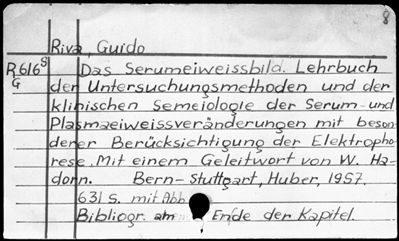 8
Riva, Guido
R616S Das Serumeiweissbild. Lehrbuch
G der Untersuchungsmethoden und der
klinischen Semeiologie der Serum-und
Plasmaeiweissveränderungen mit beson
derer Berücksichtigung der Elektropho
rese. Mit einem Geleitwort von W. Ha-
dorn. Bern-Stuttgart, Huber, 1957.
631 S. mit Abb
Bibliogr. am Ende der Kapitel.